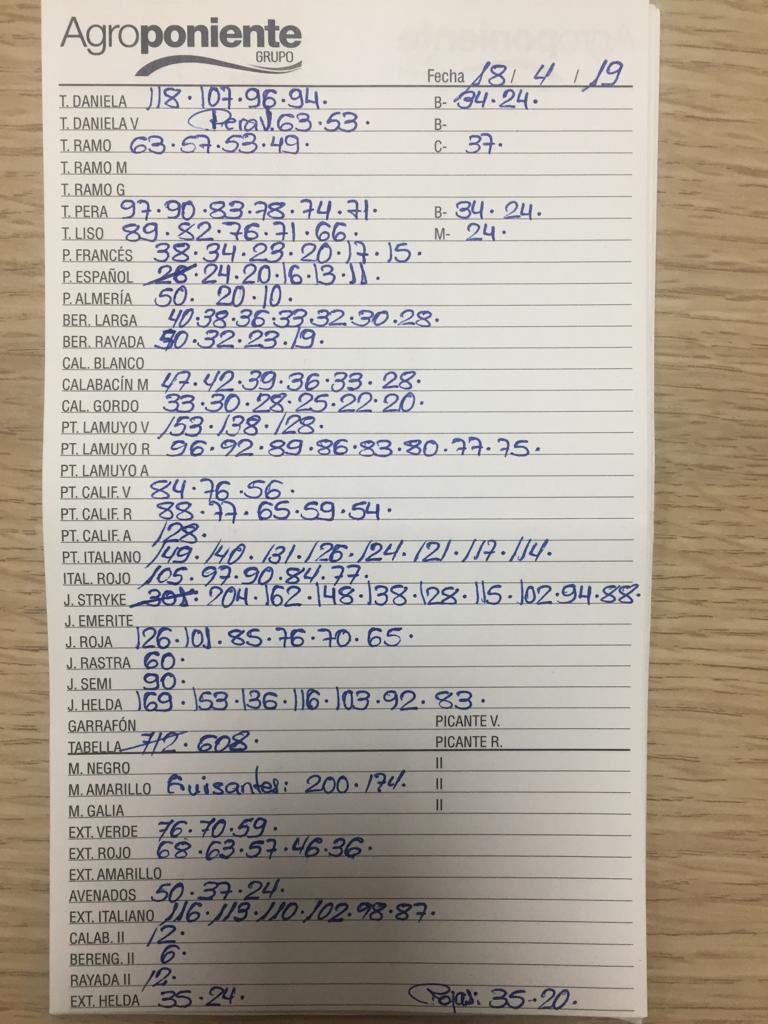 Agroponiente
GRUPO
Fecha 18 / 4 / 19
T. DANELA 118·107·96·94· B- 34·24·
T. DANIELA V PeraV. 63·53· B-
T. RAMO 63·57·53·49· C- 37·
T. RAMO M
T. RAMO G
T. PERA 97·90·83·78·74·71· B- 34·24·
T. LISO 89·82·76·71·66· M- 24·
P. FRANCÉS 38·34·23·20·17·15·
P. ESPAÑOL 28·24·20·16·13·11·
P. ALMERÍA 50· 20·10·
BER. LARGA 40·38·36·33·32·30·28·
BER. RAYADA 50·32·23·19·
CAL. BLANCO
CALABACÍN M 47·42·39·36·33·28·
CAL. GORDO 33·30·28·25·22·20·
PT. LAMUYO V 153·138·128·
PT. LAMUYO R 96·92·89·86·83·80·77·75·
PT. LAMUYO A
PT. CALIF. V 84·76·56·
PT. CALIF. R 88·77·65·59·54·
PT. CALIF. A 128·
PT. ITALIANO 149·140·131·126·124·121·117·114·
ITAL. ROJO 105·97·90·84·77·
J. STRYKE 301· 204·162·148·138·128·115·102·94·88·
J. EMERITE
J. ROJA 126·101·85·76·70·65·
J. RASTRA 60·
J. SEMI 90·
J. HELDA 169·153·136·116·103·92·83·
GARRAFÓN PICANTE V.
TABELLA 712·608· PICANTE R.
M. NEGRO II
M. AMARILLO Guisantes: 200·174· II
M. GALIA II
EXT. VERDE 76·70·59·
EXT. ROJO 68·63·57·46·36·
EXT. AMARILLO
AVENADOS 50·37·24·
EXT. ITALIANO 116·113·110·102·98·87·
CALAB. II 12·
BERENG. II 6·
RAYADA II 12·
EXT. HELDA 35·24· Rojas: 35-20·